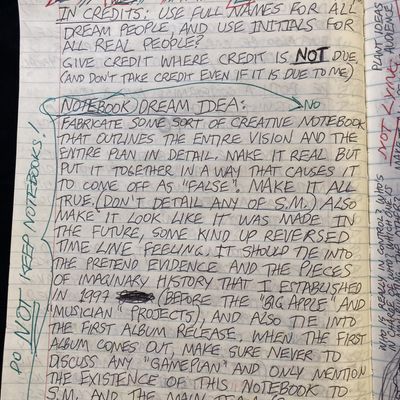 IN CREDITS: USE FULL NAMES FOR ALL
DREAM PEOPLE, AND USE INITIALS FOR
ALL REAL PEOPLE?
GIVE CREDIT WHERE CREDIT IS NOT DUE,
(AND DON'T TAKE CREDIT EVEN IF IT IS DUE TO ME)
NOTEBOOK) DREAM IDEA: NO
FABRICATE SOME SORT OF CREATIVE NOTEBOOK
THAT OUTLINES THE ENTIRE VISION AND THE
ENTIRE PLAN IN DETAIL. MAKE IT REAL BUT
PUT IT TOGETHER IN A WAY THAT CAUSES IT
TO COME OFF AS "FALSE". MAKE IT ALL
TRUE. (DON'T DETAIL ANY OF S.M.) ALSO
MAKE IT LOOK LIKE IT WAS MADE IN
THE FUTURE, SOME KIND UP REVERSED
TIME LINE FEELING. IT SHOULD TIE INTO
THE PRETEND EVIDENCE AND THE PIECES
OF IMAGINARY HISTORY THAT I ESTABLISHED
IN 1997 (BEFORE THE "BIG APPLE" AND
"MUSICIAN" PROJECTS), AND ALSO TIE INTO
THE FIRST ALBUM RELEASE, WHEN THE FIRST
ALBUM COMES OUT, MAKE SURE NEVER TO
DISCUSS ANY "GAMEPLAN" AND ONLY MENTION
THE EXISTENCE OF THIS NOTEBOOK TO
S.M. AND THE MAIN
DO NOT KEEP NOTEBOOKS!
PLANT IDEAS
AUDIENCE
NOT LYING